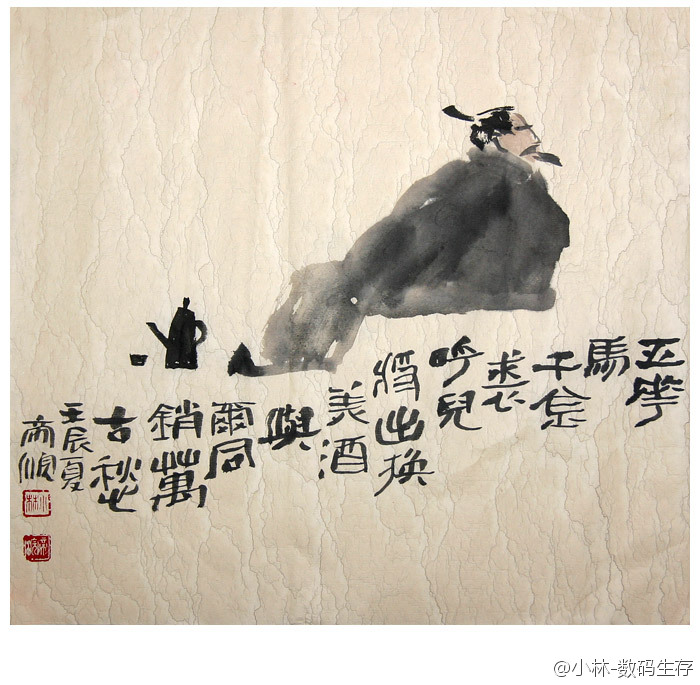 五花
馬
千金
裘
呼兒
將出換
美酒
與
爾同
銷萬
古愁
壬辰夏
@小林-数码生存